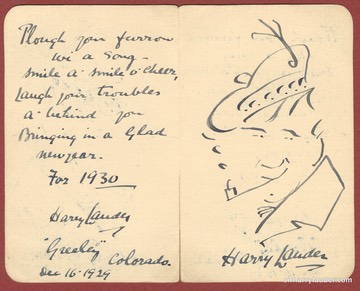 Plough your furrow
wi a song -
smile a smile o' cheer,
Laugh your troubles
a' behind you
Bringing in a Glad
newyear.
For 1930
Harry Lauder
"Greeley"
Colorado.
Dec 16-1929
Harry Lauder